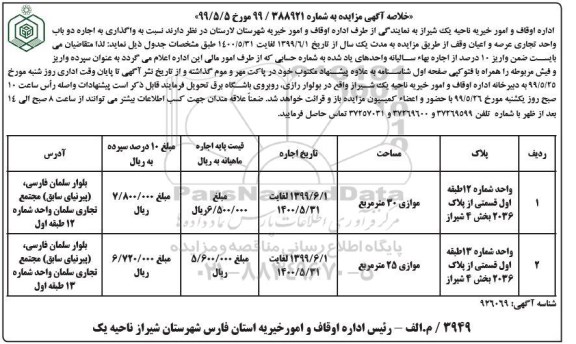 «خلاصه آگهی مزایده به شماره ۳۸۸۹۲۱ / ۹۹ مورخ ۹۹/۵/۵»
اداره اوقاف و امور خیریه ناحیه یک شیراز به نمایندگی از طرف اداره اوقاف و امور خیریه شهرستان لارستان در نظر دارند نسبت به واگذاری به اجاره دو باب
واحد تجاری عرصه و اعیان وقف از طریق مزایده به مدت یک سال از تاریخ ۱۳۹۹/۶/۱ لغایت ۱۴۰۰/۵/۳۱ طبق مشخصات جدول ذیل نمایند: لذا متقاضیان می
بایست ضمن واریز ۱۰ درصد از اجاره بهاء سالیانه واحدهای یاد شده به شماره حسابی که از طرف امور مالی این اداره اعلام می گردد به عنوان سپرده واریز
و فیش مربوطه را همراه با فتوکپی صفحه اول شناسنامه به علاوه پیشنهاد مکتوب خود در پاکت مهر و موم گذاشته و از تاریخ نشر آگهی تا پایان وقت اداری روز شنبه مورخ
۹۹/۵/۲۵ به دبیرخانه اداره اوقاف و امور خیریه ناحیه یک شیراز واقع در بولوار رازی، روبروی باشگاه برق تحویل فرمایند قابل ذکر است پیشنهادات واصله رأس ساعت ۱۰
صبح روز یکشنبه مورخ ۹۹/۵/۲۶ با حضور و اعضاء کمیسیون مزایده باز و قرائت خواهد شد. ضمناً علاقه مندان جهت کسب اطلاعات بیشتر می توانند از ساعت ۸ صبح الی ۱۴
بعد از ظهر با شماره تلفن ۳۷۲۶۹۵۹۹ و ۳۷۲۶۹۶۰۰ و ۳۷۲۵۷۰۳۱ تماس حاصل فرمایید.
ردیف پلاک مساحت تاریخ اجاره قیمت پایه اجاره ماهیانه به ریال مبلغ ۱۰ درصد سپرده به ریال آدرس
۱ واحد شماره ۱۲طبقه اول قسمتی از پلاک ۲۰۳۶ بخش ۴ شیراز موازی ۳۰ مترمربع ۱۳۹۹/۶/۱ لغایت ۱۴۰۰/۵/۳۱ مبلغ ۶/۵۰۰/۰۰۰ریال مبلغ ۷/۸۰۰/۰۰۰ ریال بلوار سلمان فارسی، (پیرنیای سابق) مجتمع تجاری سلمان واحد شماره ۱۲ طبقه اول
۲ واحد شماره ۱۳طبقه اول قسمتی از پلاک ۲۰۳۶ بخش ۴ شیراز موازی ۲۵ مترمربع ۱۳۹۹/۶/۱ لغایت ۱۴۰۰/۵/۳۱ مبلغ ۵/۶۰۰/۰۰۰ ریال مبلغ ۶/۷۲۰/۰۰۰ ریال بلوار سلمان فارسی، (پیرنیای سابق) مجتمع تجاری سلمان واحد شماره ۱۳ طبقه اول
شناسه آگهی: ۹۲۶۰۶۹
۳۹۴۹ / م.الف – رئیس اداره اوقاف و امورخیریه استان فارس شهرستان شیراز ناحیه یک